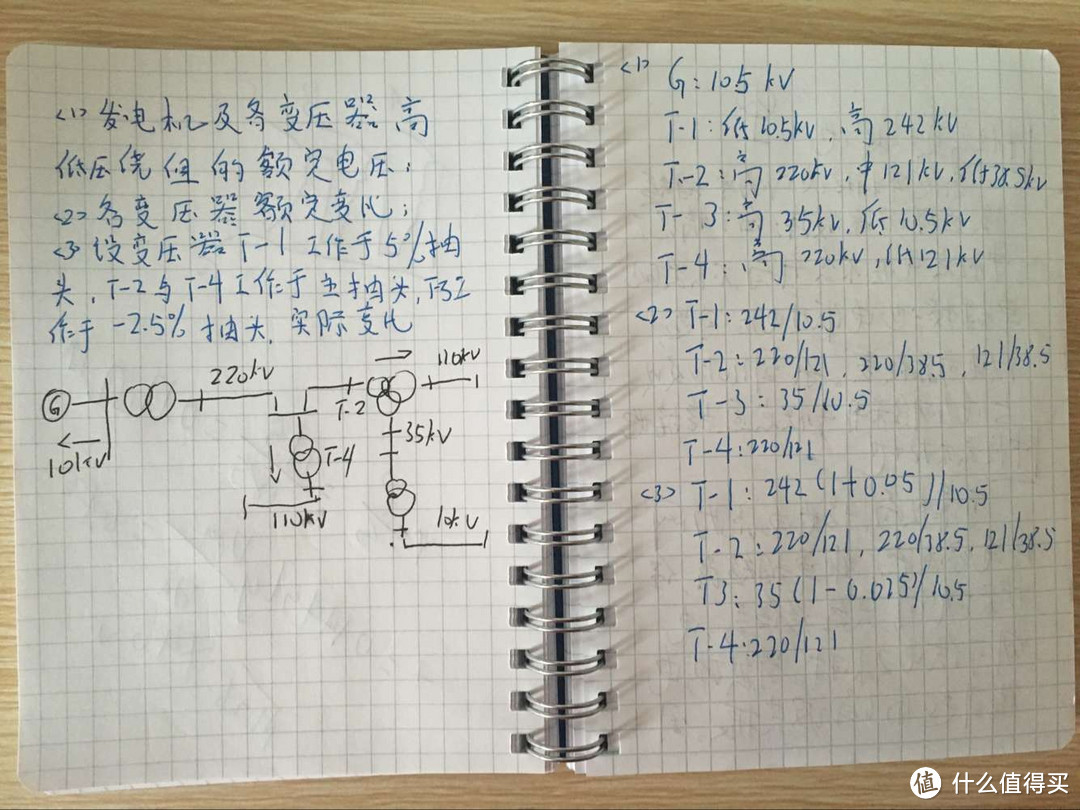 <1> 发电机及各变压器高
低压绕组的额定电压;
<2> 各变压器额定变比;
<3> 设变压器 T-1 工作于 5% 抽
头, T-2 与 T-4 工作于主抽头, T-3工
作于 -2.5% 抽头, 实际变比
G
10kV
220kV
T-2
110kV
35kV
T-4
110kV
10kV
<1> G: 10.5 kV
T-1: 低 10.5kV, 高 242kV
T-2: 高 220kV, 中 121kV, 低38.5kV
T-3: 高 35kV, 低 10.5kV
T-4: 高 220kV, 低121kV
<2> T-1: 242/10.5
T-2: 220/121, 220/38.5, 121/38.5
T-3: 35/10.5
T-4: 220/121
<3> T-1: 242(1+0.05)/10.5
T-2: 220/121, 220/38.5, 121/38.5
T3: 35(1-0.025)/10.5
T-4: 220/121
值 什么值得买